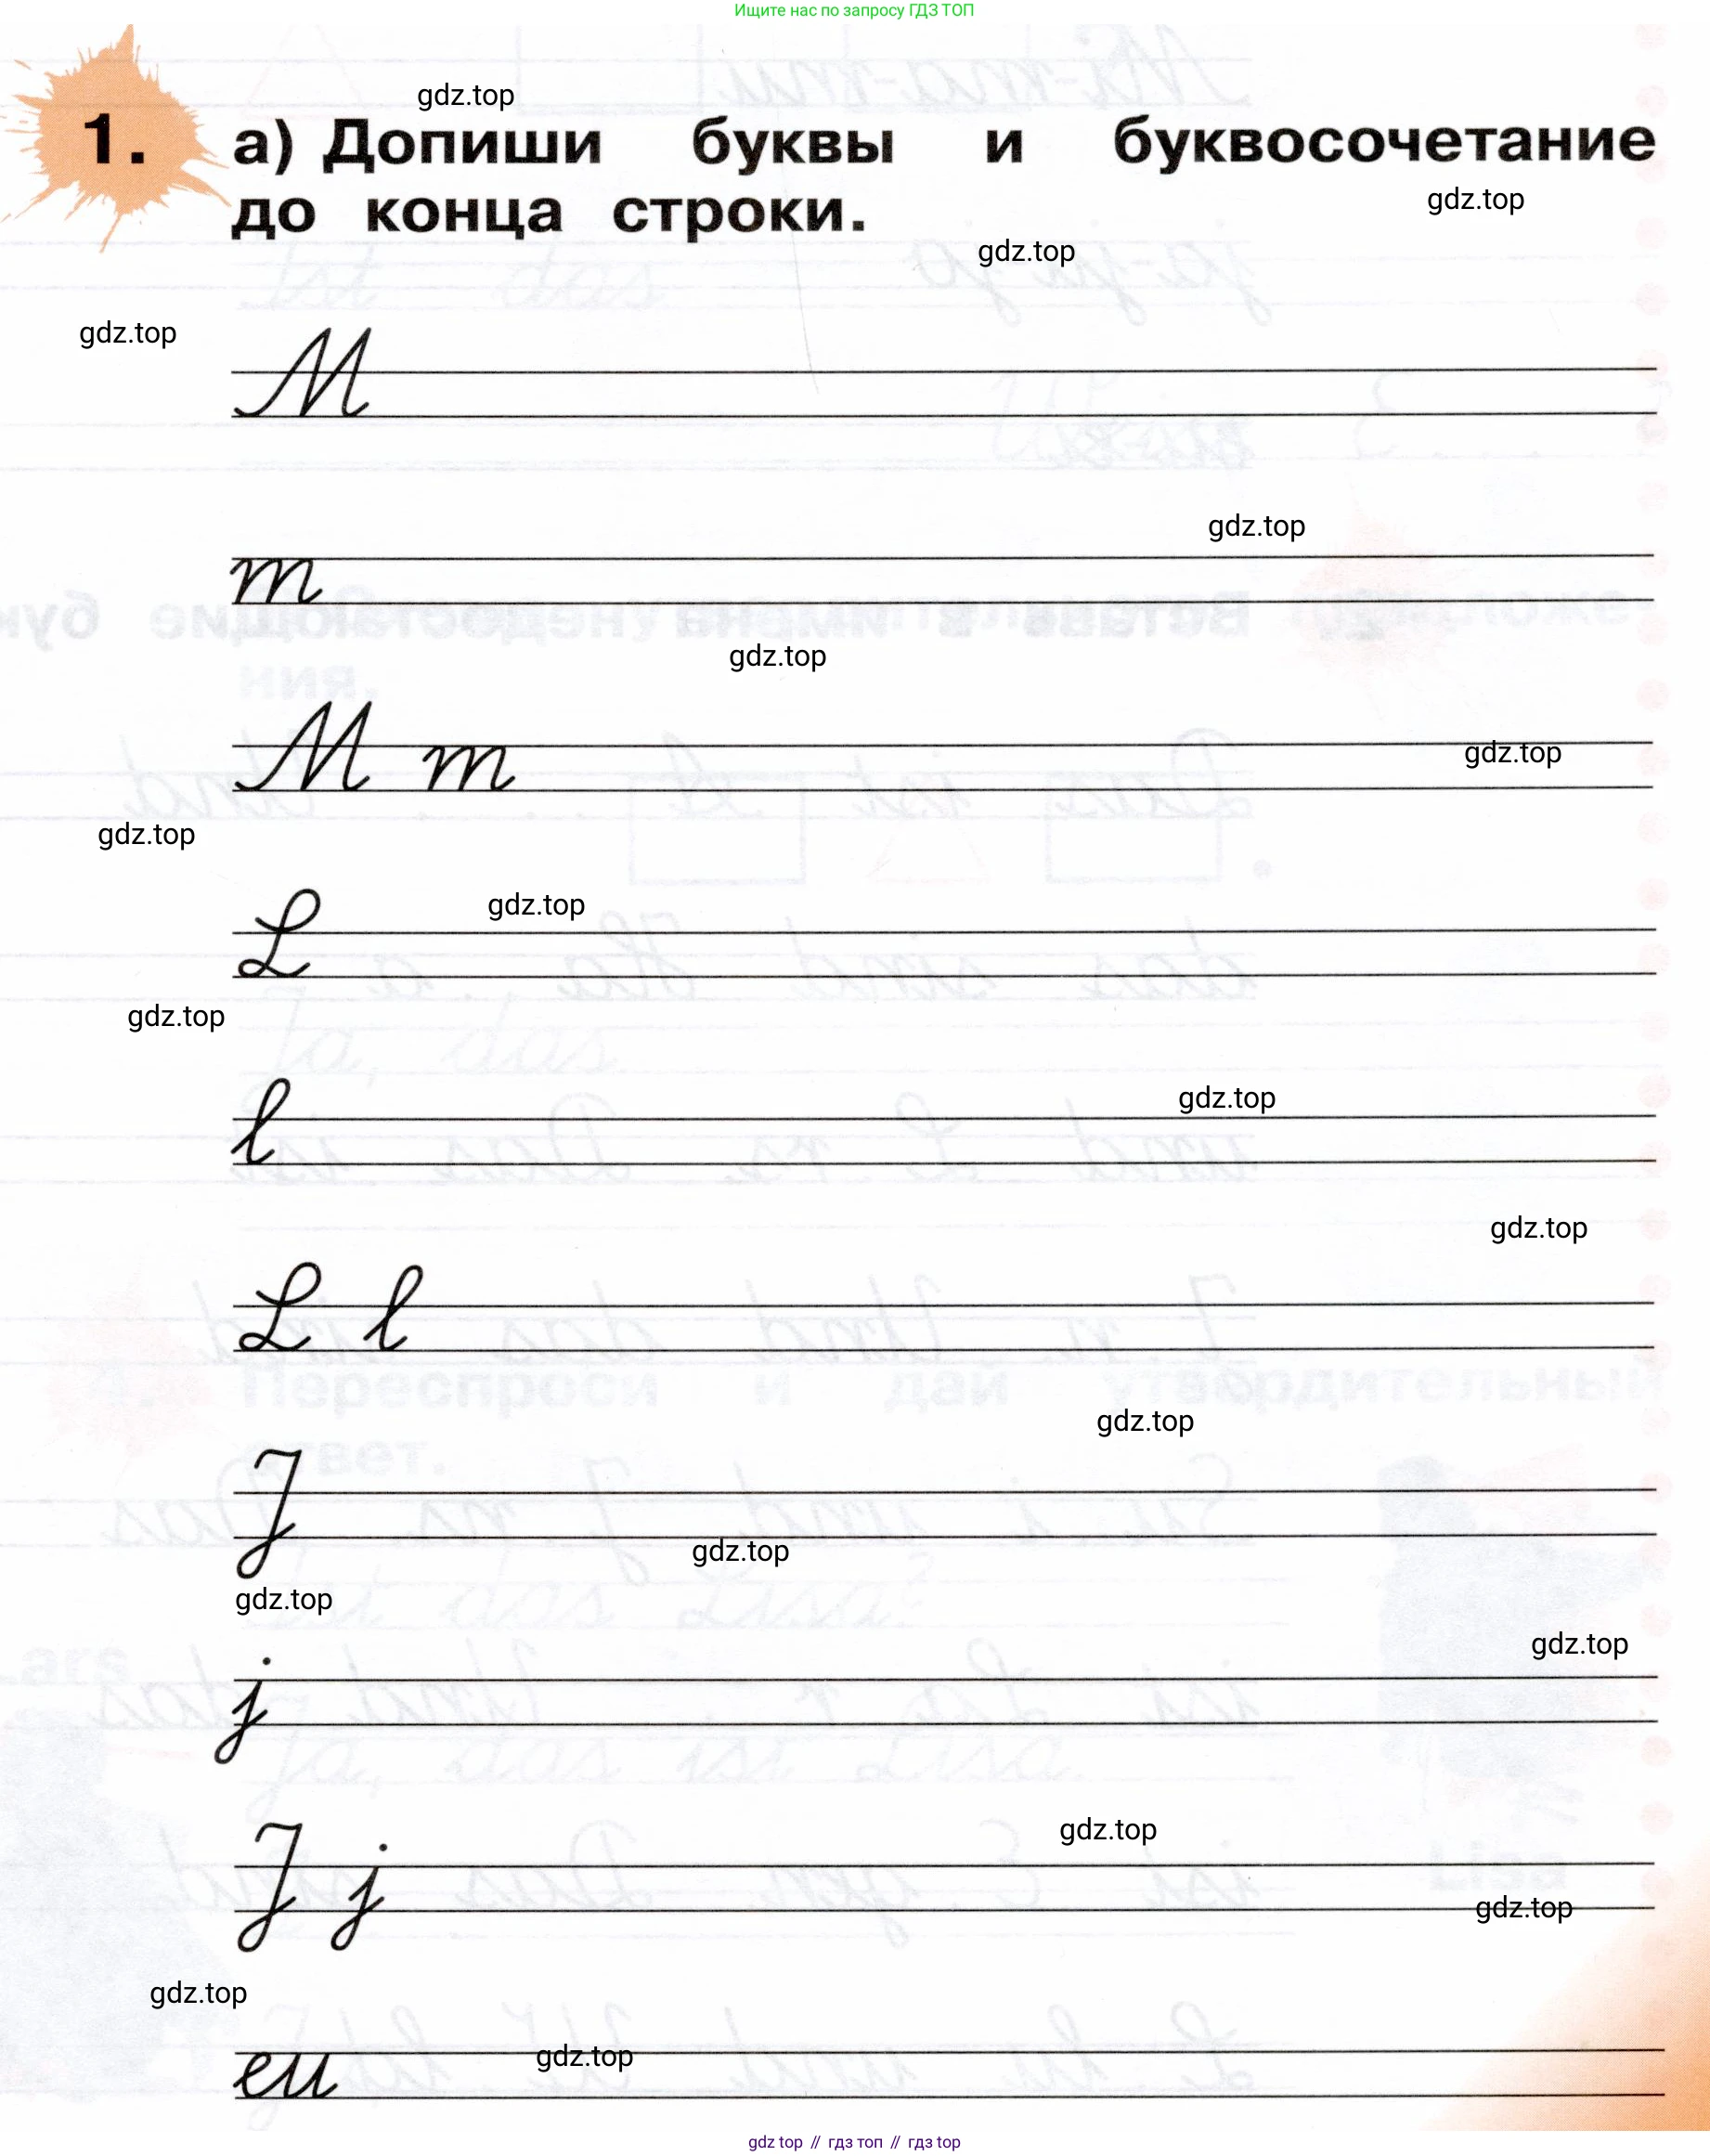 Ищите нас по запросу ГДЗ ТОП
gdz.top
1. а) Допиши буквы и буквосочетание
gdz.top
до конца строки.
gdz.top
gdz.top
M
gdz.top
m
gdz.top
M m
gdz.top
gdz.top
L
gdz.top
gdz.top
l
gdz.top
gdz.top
L l
gdz.top
J
gdz.top
gdz.top
gdz.top
j
gdz.top
J j
gdz.top
gdz.top
eu
gdz.top
gdz top // гдз топ // гдз top